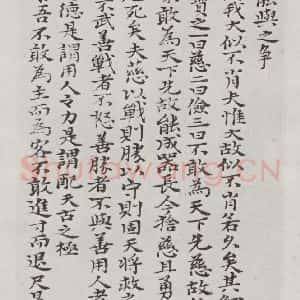 能與之爭
我大似不肖夫惟大故似不肖若久矣其
寶之一曰慈二曰儉三曰不敢為天下先慈故
敢為天下先故能成器長今捨慈且勇
死矣夫慈以戰則勝以守則固天將救
不武善戰者不怒善勝者不與善用人者
德是謂用人之力是謂配天古之極
吾不敢為主而為客不敢進寸而退尺是
Shufawang.CN